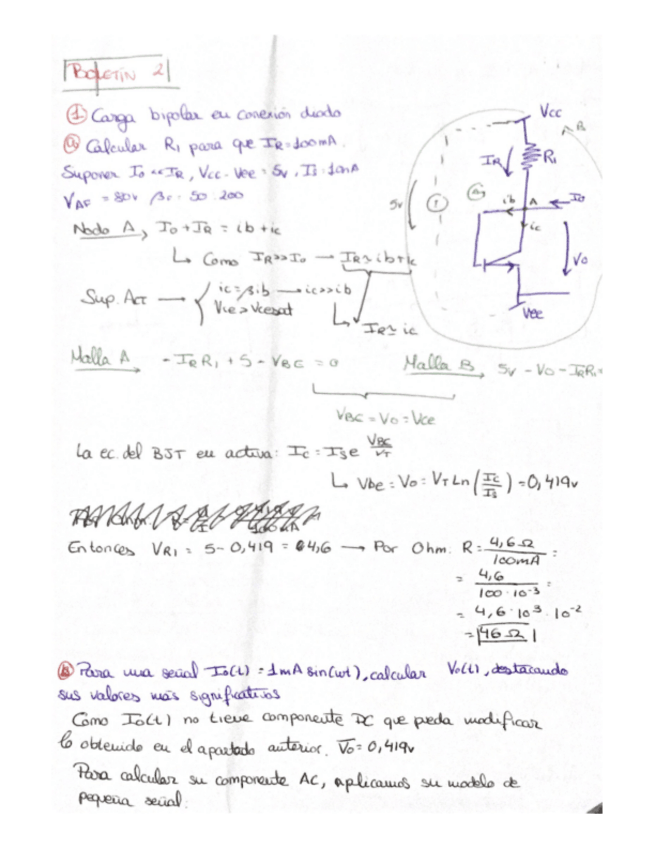 BOLETÍN 2
① Carga bipolar en conexión diodo
ⓐ Calcular R1 para que IR=100mA.
Suponer Io<<IR, Vcc-Vee=5V, Is=10nA
VAF=80V βF=50-200
Vcc
IR
R1
5V
ib
A
Io
ic
Vo
Vee
Nodo A, Io+IR=ib+ic
↳ Como IR>>Io → IR≃ib+ic
Sup. ACT → { ic=βib → ic>>ib
Vce>Vcesat
↳ IR≃ic
Malla A -IRR1+5-VBC=0 Malla B, 5V-Vo-IRR1=
VBC=Vo=Vce
La ec. del BJT en activa: Ic=Ise VBC/VT
↳ Vbe=Vo=VT Ln(Ic/Is)=0,419V
Entonces VR1=5-0,419=4,6 → Por Ohm: R=4,6Ω/100mA=
=4,6/100·10-3=
=4,6·10³·10-2
=46Ω
ⓑ Para una señal Io(t)=1mA sin(wt), calcular Vo(t), destacando
sus valores más significativos
Como Io(t) no tiene componente DC que pueda modificar
lo obtenido en el apartado anterior. Vo=0,419V
Para calcular su componente AC, aplicamos su modelo de
pequeña señal.